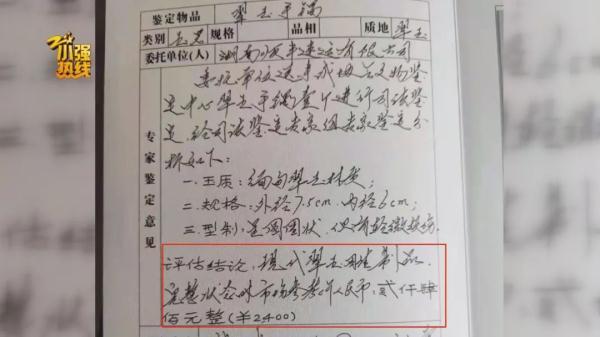 小强热线
鉴定物品 翠玉手镯
类别 玉器 规格 品相 质地 翠玉
委托单位(人) 湖南 有限公司
委托单位送来 文物鉴
定中心翠玉手镯壹个进行司法鉴
定,经司法鉴定专家组专家鉴定分
析如下:
专家鉴定意见
一.玉质:缅甸翠玉材质;
二.规格:外径7.5cm.内径6cm;
三.型制:呈圆圈状.
评估结论:现代翠玉 制品.
完整状态的市场参考价人民币:贰仟肆
佰元整(¥2,400)